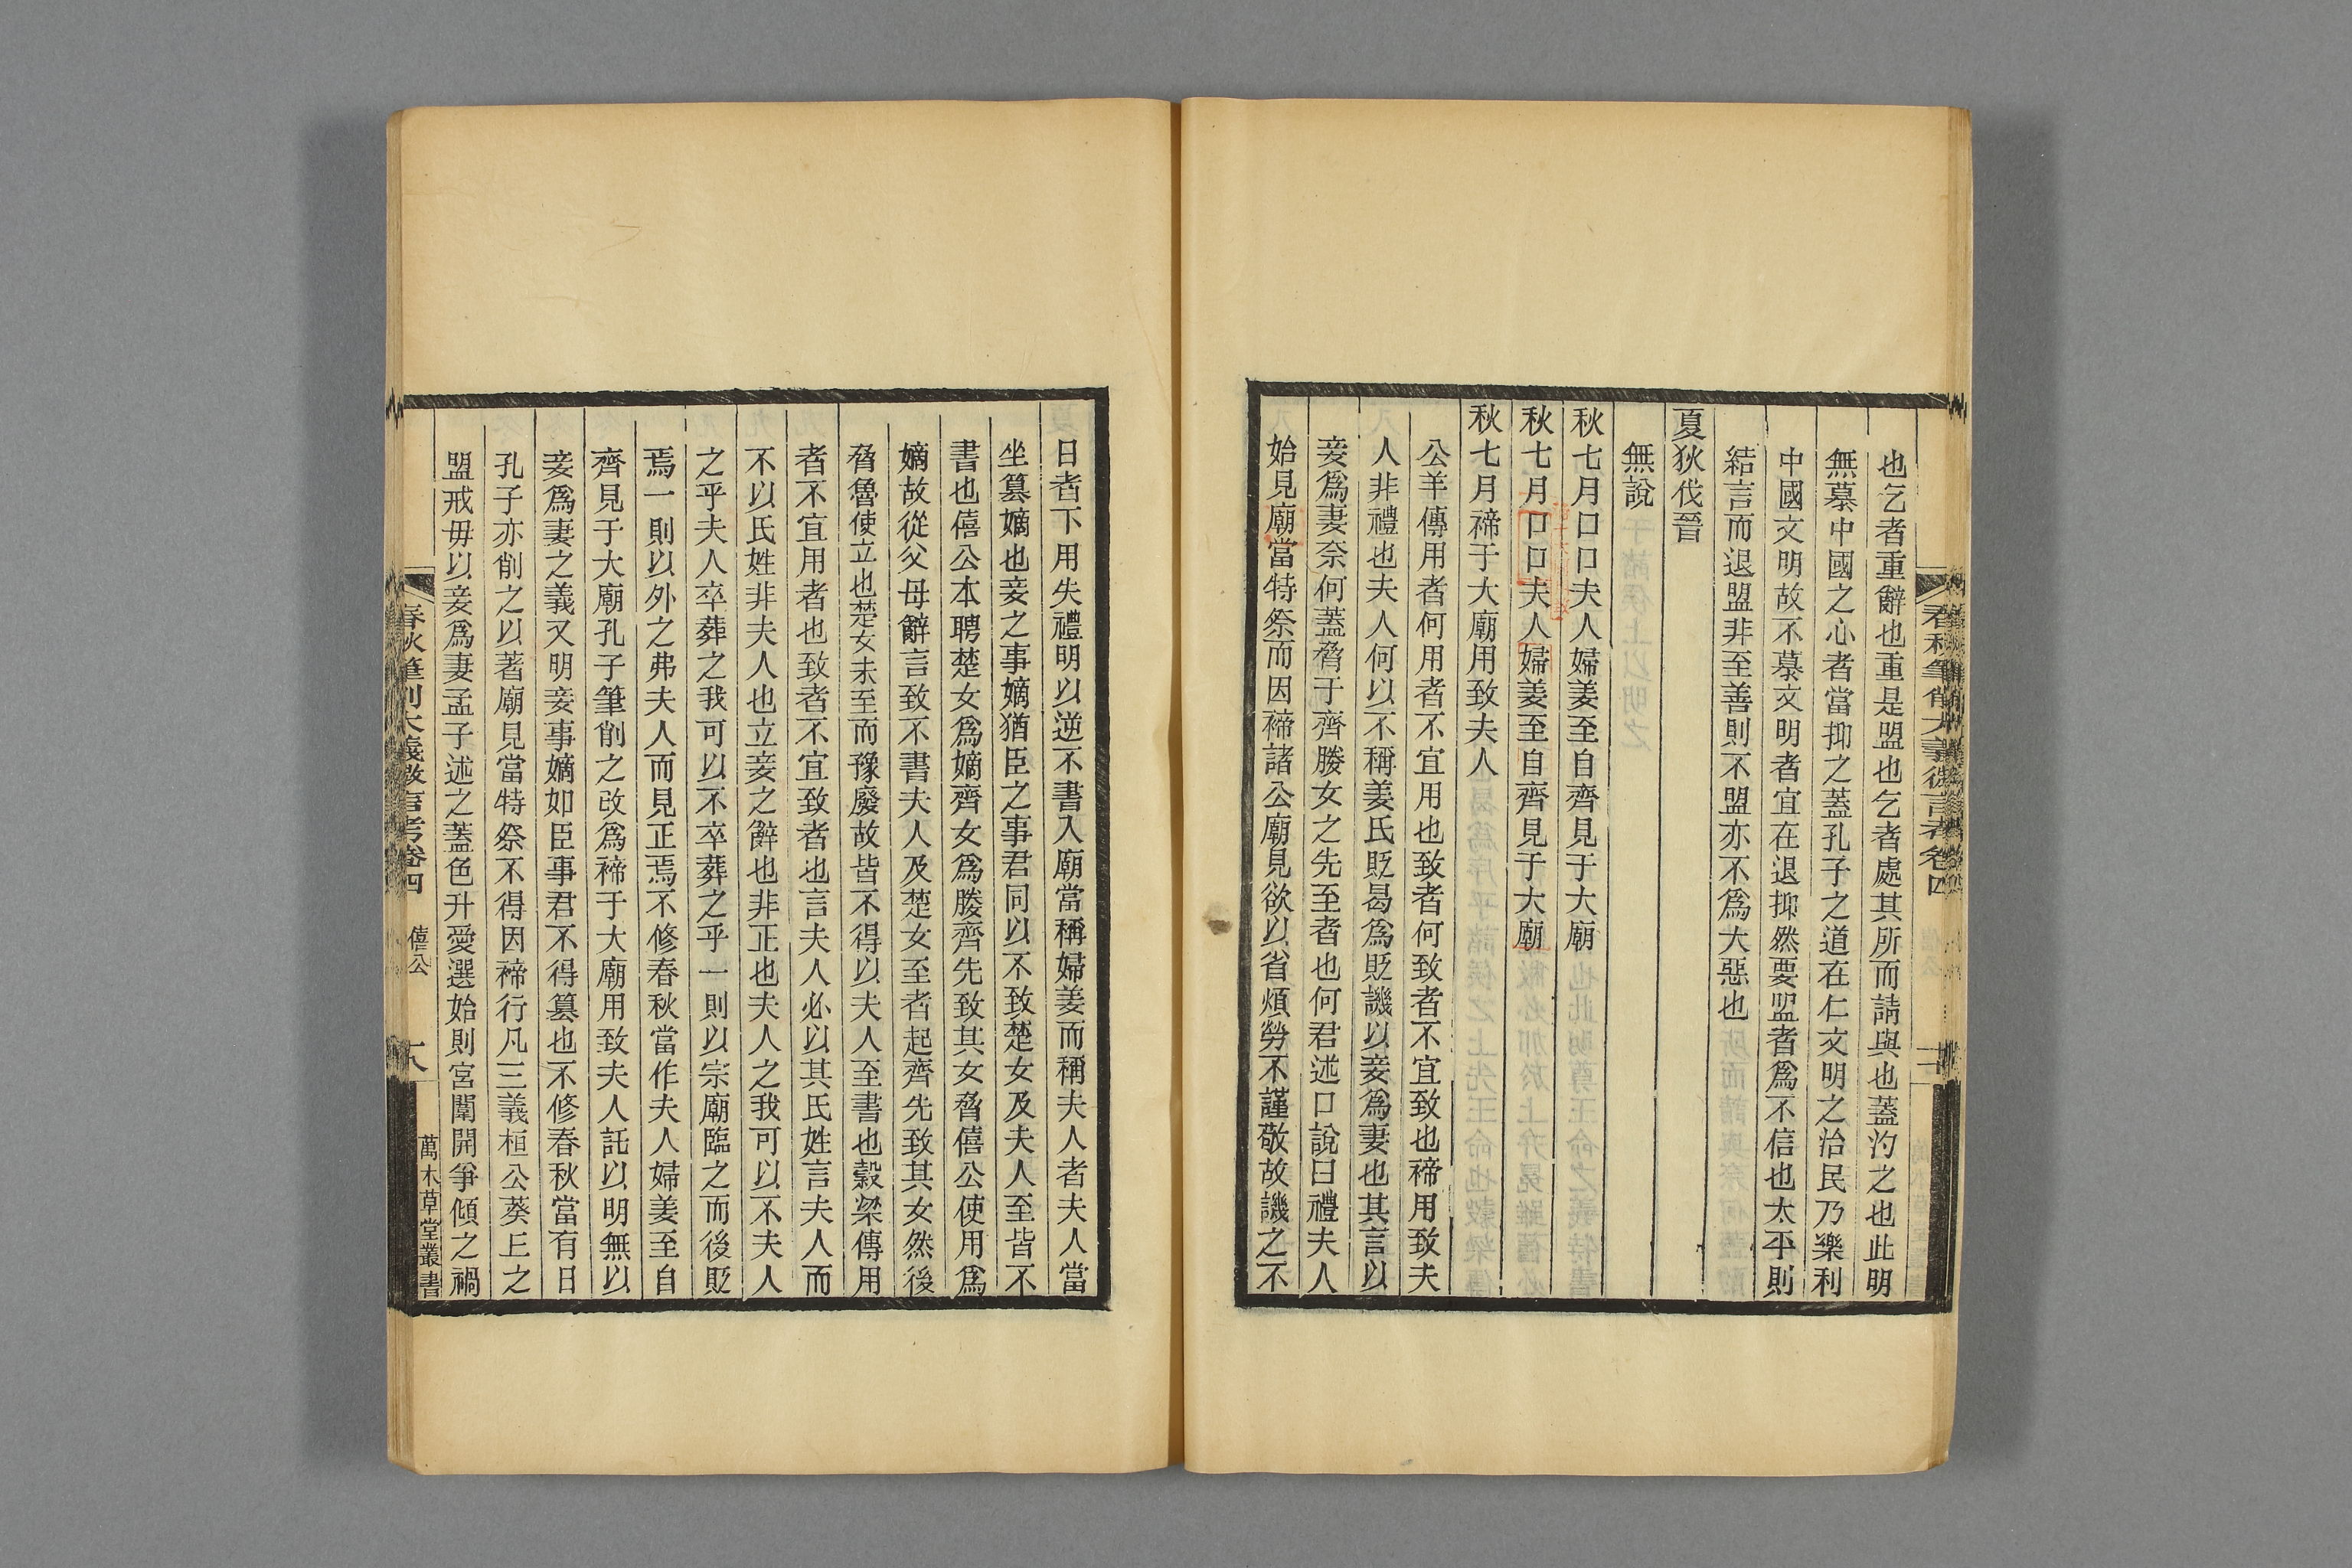 也乞者重辭也重是盟也乞者處其所而請與也蓋汋之也此明
無慕中國之心者當抑之蓋孔子之道在仁文明之治民乃樂利
中國文明故不慕文明者宜在退抑然要盟者爲不信也太平則
結言而退盟非至善則不盟亦不爲大惡也
夏狄伐晉
無說
秋七月口口夫人婦姜至自齊見于大廟
秋七月口口夫人婦姜至自齊見于大廟
秋七月禘于大廟用致夫人
公羊傳用者何用者不宜用也致者何致者不宜致也禘用致夫
人非禮也夫人何以不稱姜氏貶曷爲貶譏以妾爲妻也其言以
妾爲妻奈何蓋脅于齊媵女之先至者也何君述口說曰禮夫人
始見廟當特祭而因禘諸公廟見欲以省煩勞不謹敬故譏之不
日者下用失禮明以逆不書入廟當稱婦姜而稱夫人者夫人當
坐篡嫡也妾之事嫡猶臣之事君同以不致楚女及夫人至皆不
書也僖公本聘楚女爲嫡齊女爲媵齊先致其女脅僖公使用爲
嫡故從父母辭言致不書夫人及楚女至者起齊先致其女然後
脅魯使立也楚女未至而豫廢故皆不得以夫人至書也穀梁傳用
者不宜用者也致者不宜致者也言夫人必以其氏姓言夫人而
不以氏姓非夫人也立妾之辭也非正也夫人之我可以不夫人
之乎夫人卒葬之我可以不卒葬之乎一則以宗廟臨之而後貶
焉一則以外之弗夫人而見正焉不修春秋當作夫人婦姜至自
齊見于大廟孔子筆削之改爲禘于大廟用致夫人託以明無以
妾爲妻之義又明妾事嫡如臣事君不得篡也不修春秋當有日
孔子亦削之以著廟見當特祭不得因禘行凡三義桓公葵丘之
盟戒毋以妾爲妻孟子述之蓋色升愛選始則宮闈開爭傾之禍
春秋筆削大義微言考卷四 僖公
萬木草堂叢書